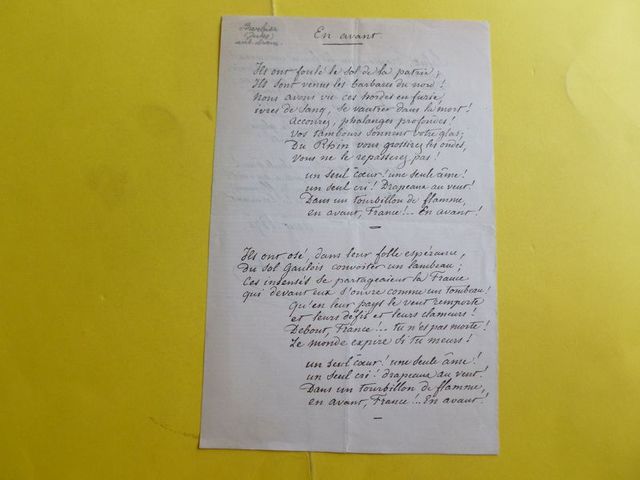 Barbier
(Jules)
aut. dram.
En avant
Ils ont foulé le sol de la patrie,
Ils sont venus les barbares du nord !
Nous avons vu ces hordes en furie,
ivres de sang, se vautrer dans la mort !
Accourez, phalanges profondes !
Vos tambours sonnent votre glas ;
Du Rhin vous grossirez les ondes,
Vous ne le repasserez pas !
un seul cœur ! une seule âme !
un seul cri ! Drapeaux au vent !
Dans un tourbillon de flamme,
en avant, France !.. En avant !
Ils ont osé, dans leur folle espérance,
Du sol Gaulois convoiter un lambeau ;
Ces insensés se partageaient la France
qui devant eux s'ouvre comme un tombeau !
Qu'en leur pays le vent remporte
et leurs défis et leurs clameurs !
Debout, France !.. tu n'es pas morte !
Le monde expire si tu meurs !
un seul cœur ! une seule âme !
un seul cri ! drapeaux au vent !
Dans un tourbillon de flamme,
en avant, France !.. En avant !